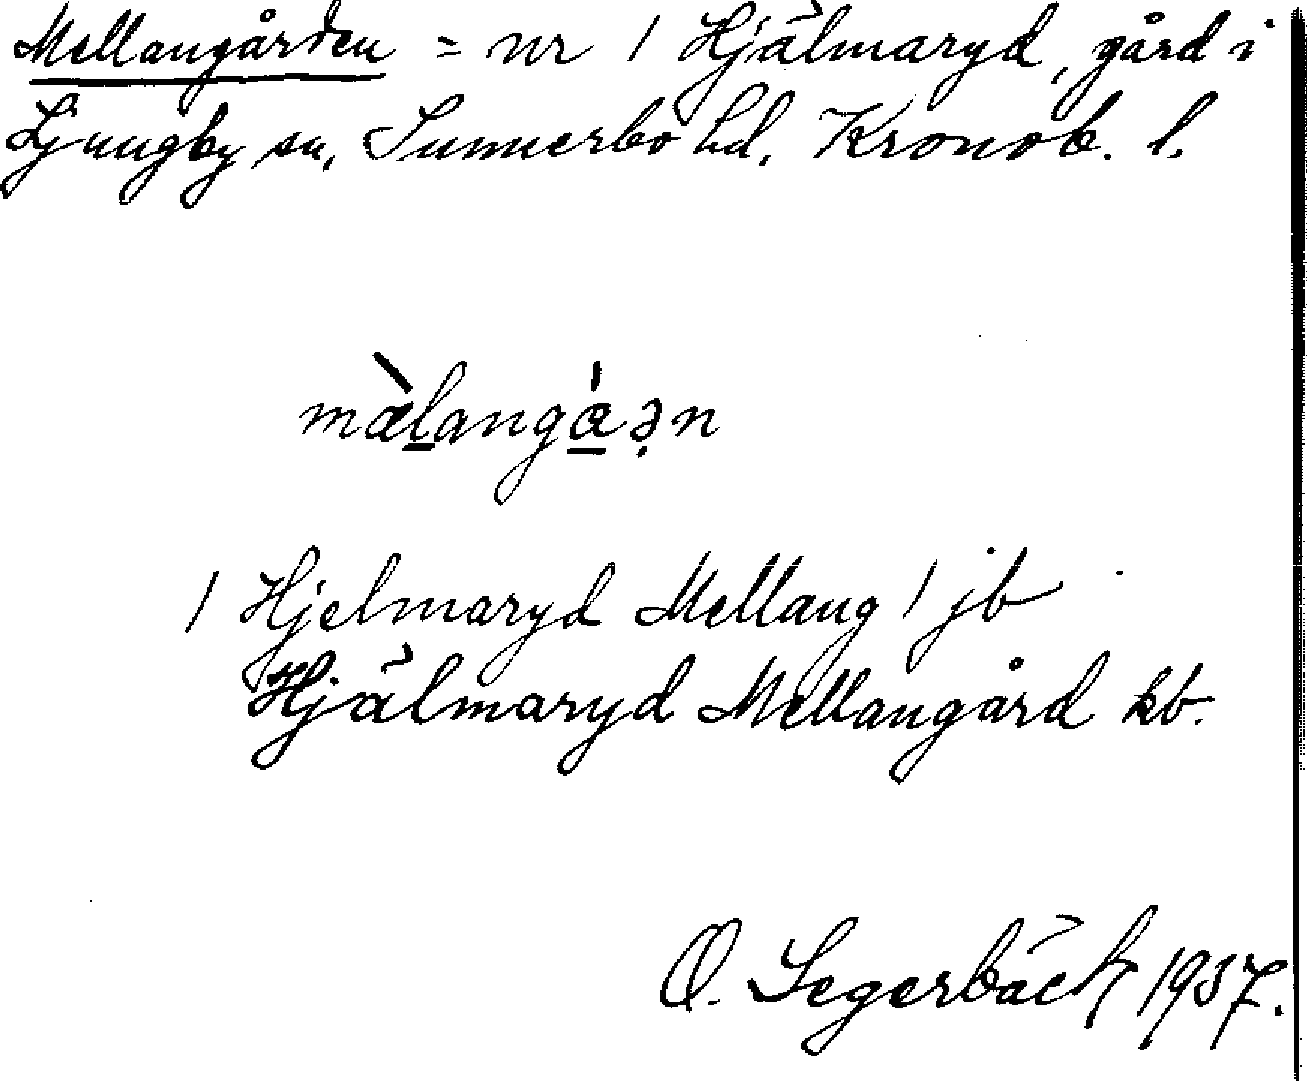 Mellangården = nr 1 Hjälmaryd, gård i
Ljungby sn, Sunnerbo hd. Kronob. l.
mæ̀l̲angά̲ə̣n
1 Hjelmaryd Mellang 1 jb
Hjälmaryd Mellangård kb.
O. Segerbäck 1937.